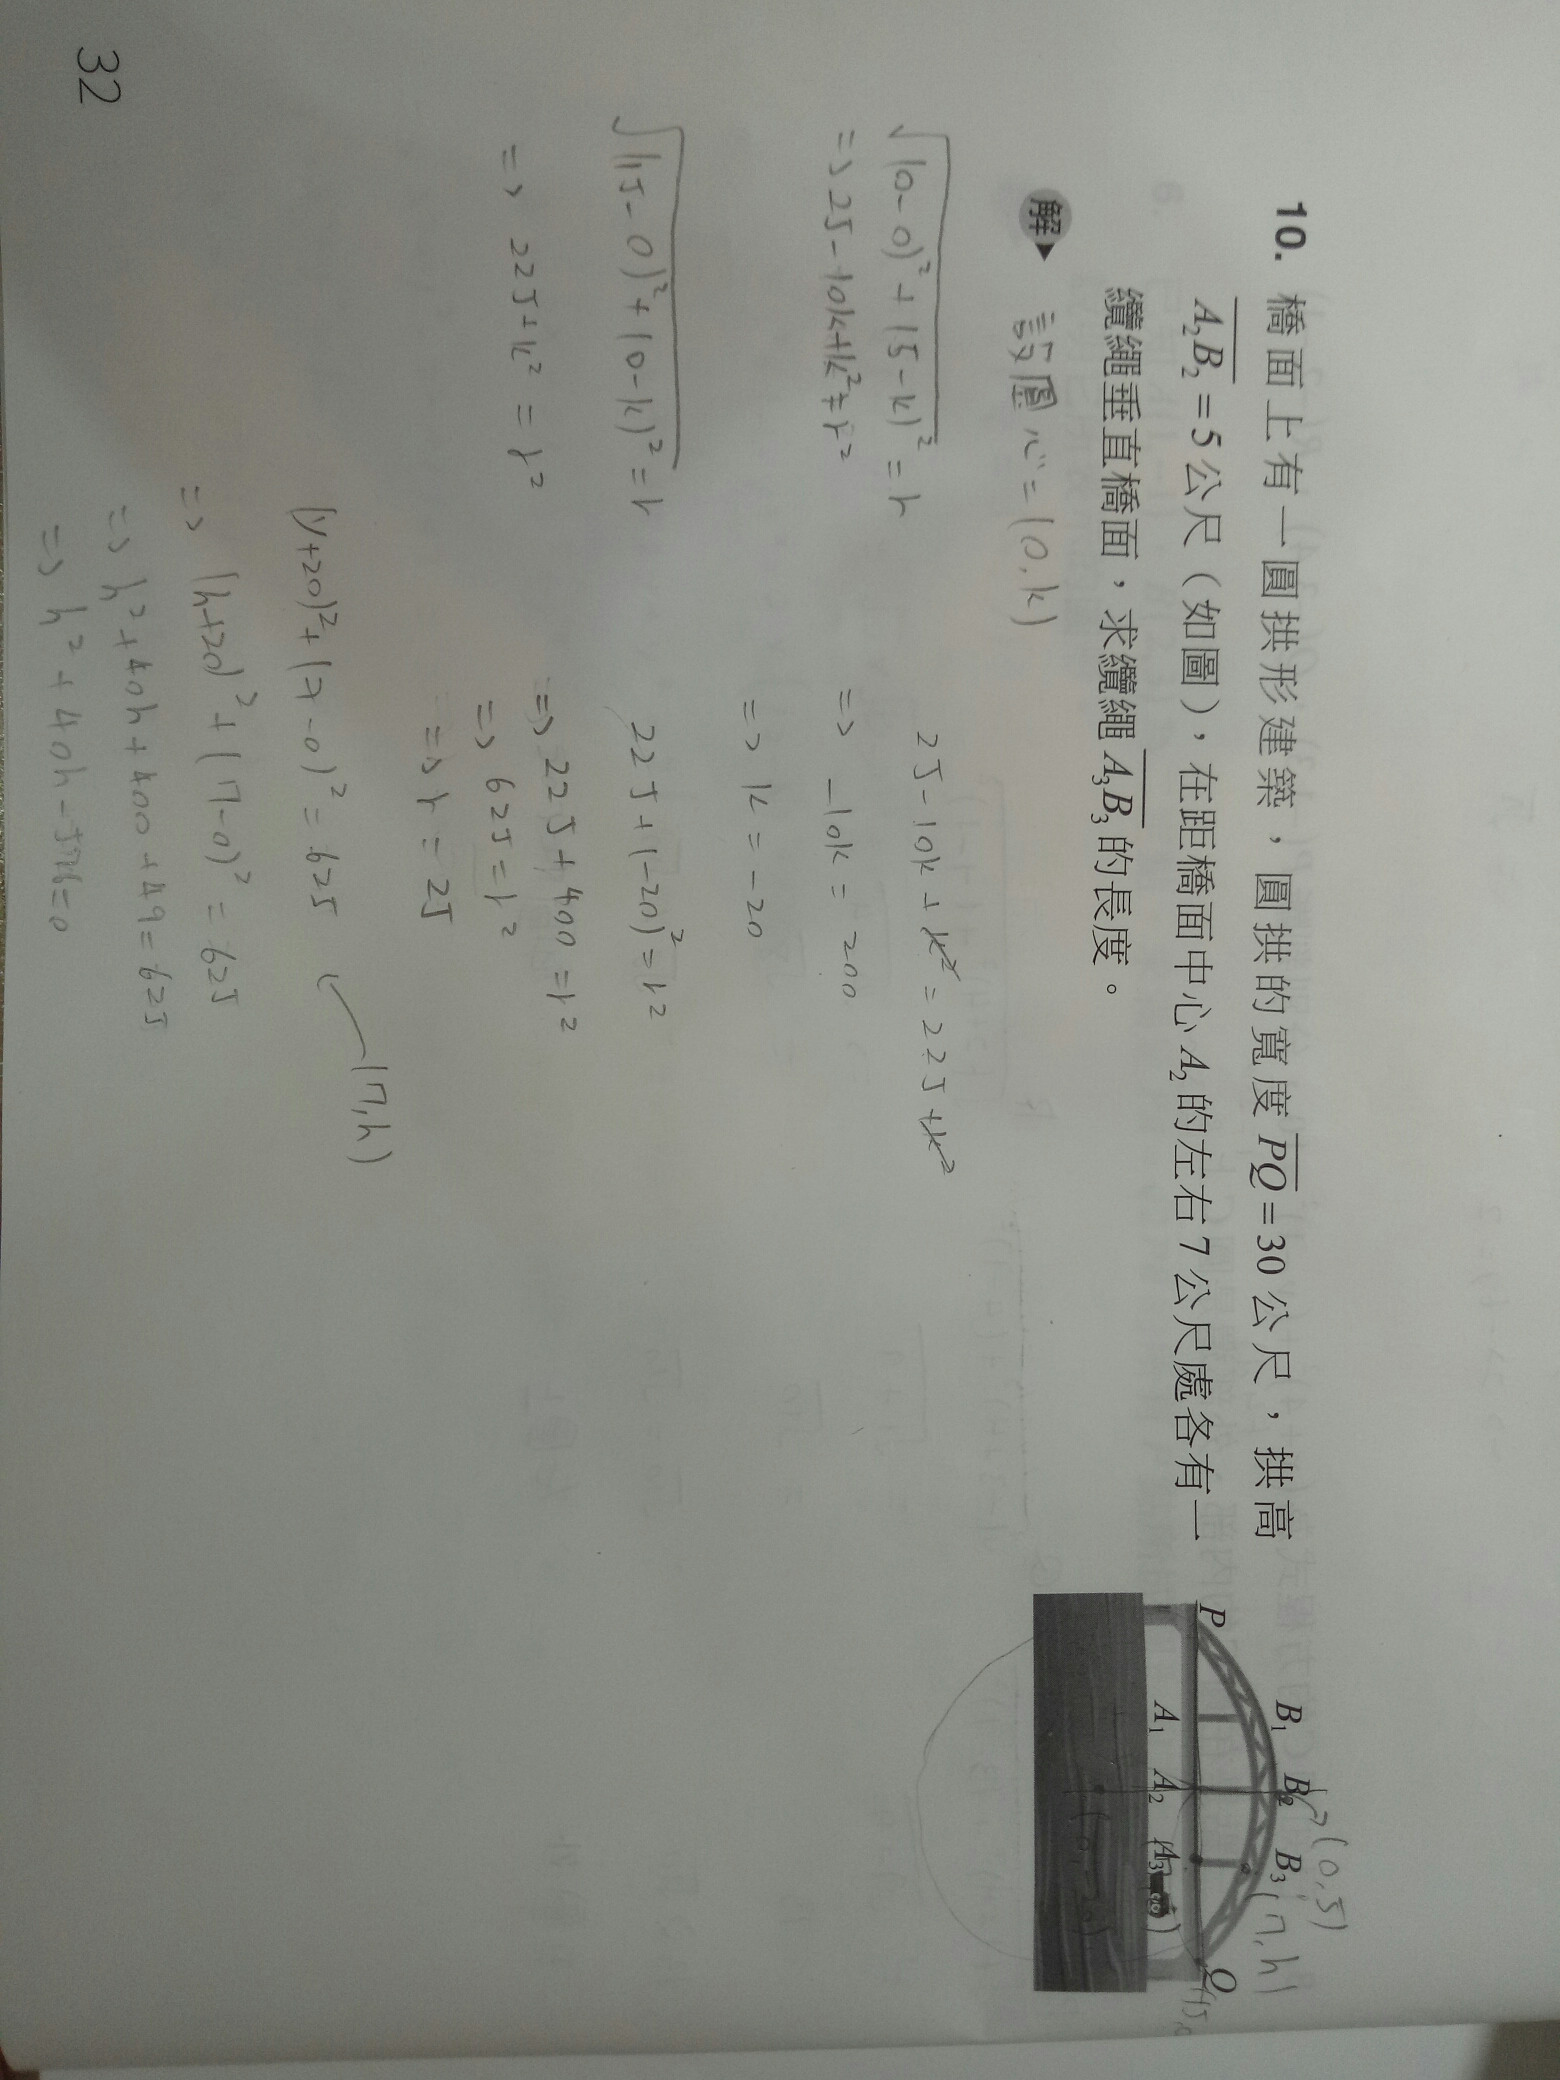 10. 橋面上有一圓拱形建築，圓拱的寬度 PQ=30 公尺，拱高
A₂B₂=5 公尺（如圖），在距橋面中心 A₂ 的左右 7 公尺處各有一
纜繩垂直橋面，求纜繩 A₃B₃ 的長度。
P B₁ B₂ B₃ Q
A₁ A₂ A₃
(0,5)
(7,h)
(0,-20)
解 設圓心=(0,k)
√(0-0)²+(5-k)² = r
=> 25-10k+k²=r²
√(15-0)²+(0-k)² = r
=> 225+k² = r²
25-10k+k² = 225+k²
=> -10k = 200
=> k=-20
225+(-20)²=r²
=> 225+400=r²
=> 625=r²
=> r=25
(y+20)²+(x-0)²=625
(7,h)
=> (h+20)²+(7-0)²=625
=> h²+40h+400+49=625
=> h²+40h-176=0
32